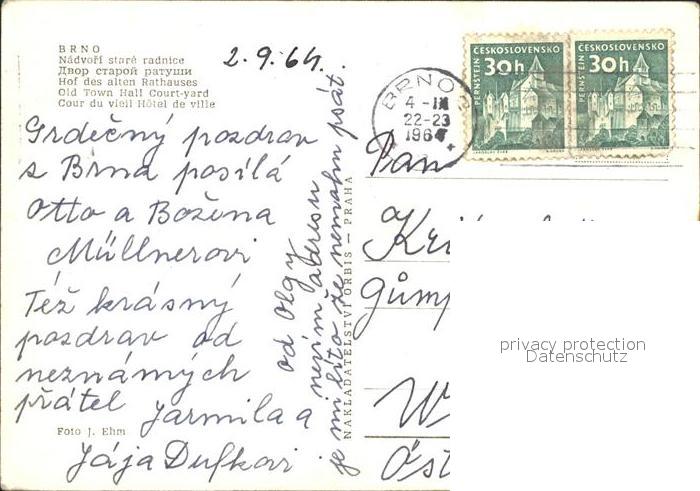 BRNO
Nádvoří staré radnice
Двор старой ратуши
Hof des alten Rathauses
Old Town Hall Court-yard
Cour du vieil Hôtel de ville
2. 9. 64.
Srdečný pozdrav
z Brna posílá
Otto a Božena
Müllnerovi
Též krásný
pozdrav od
neznámých
přátel Jarmila a
Jája Dufkovi
Foto J. Ehm
od Olgy
nevím adresu
je mi líto že nemohu psát.
NAKLADATELSTVÍ ORBIS — PRAHA
BRNO 2
4 -IX
22-23
1964
PERNŠTEJN
ČESKOSLOVENSKO
30h
PERNŠTEJN
ČESKOSLOVENSKO
30h
Pan
Gůmp
W
Öst
privacy protection
Datenschutz